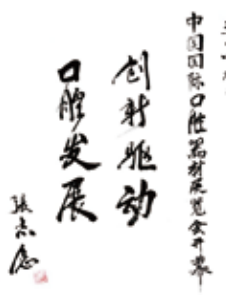 中国国际口腔器材展览会开幕
创新驱动
口腔发展
张志愿